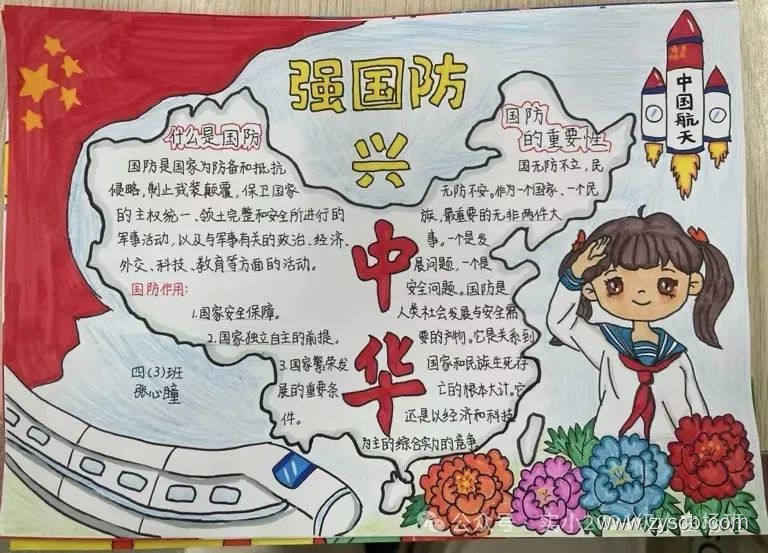 强国防
兴
中
华
中国航天
什么是国防
国防是国家为防备和抵抗
侵略,制止武装颠覆,保卫国家
的主权统一、领土完整和安全所进行的
军事活动,以及与军事有关的政治、经济、
外交、科技、教育等方面的活动。
国防作用:
1.国家安全保障。
2.国家独立自主的前提。
3.国家繁荣发
展的重要条
件。
四(3)班
张心瞳
国防
的重要性
国无防不立,民
无防不安。作为一个国家、一个民
族,最重要的无非两件大
事。一个是发
展问题,一个是
安全问题。国防是
人类社会发展与安全需
要的产物。它是关系到
国家和民族生死存
亡的根本大计。它
还是以经济和科技
为主的综合实力的竞争
公众号·实小2
www.lzyscb.com